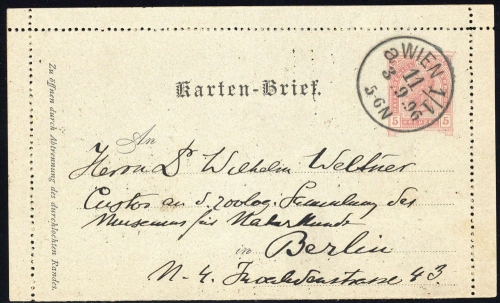 Karten-Brief.
WIEN 1/1
8
3
11
9
96
5-6N
5
5
An
Herrn Dr Wilhelm Weltner
Custos an d. zoolog. Sammlung des
Museums für Naturkunde
in Berlin
N-4. Invalidenstrasse 43
Zu öffnen durch Abtrennung des durchlochten Randes.